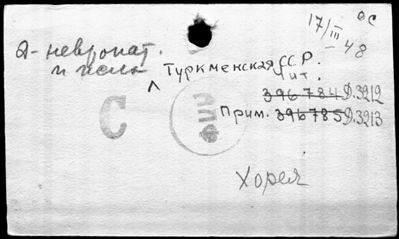 17/III - 48 ос
2-невропат.
Туркменская ССР.
396784 Д.3212
Прим. 396785 Д.3213
С
Хорея